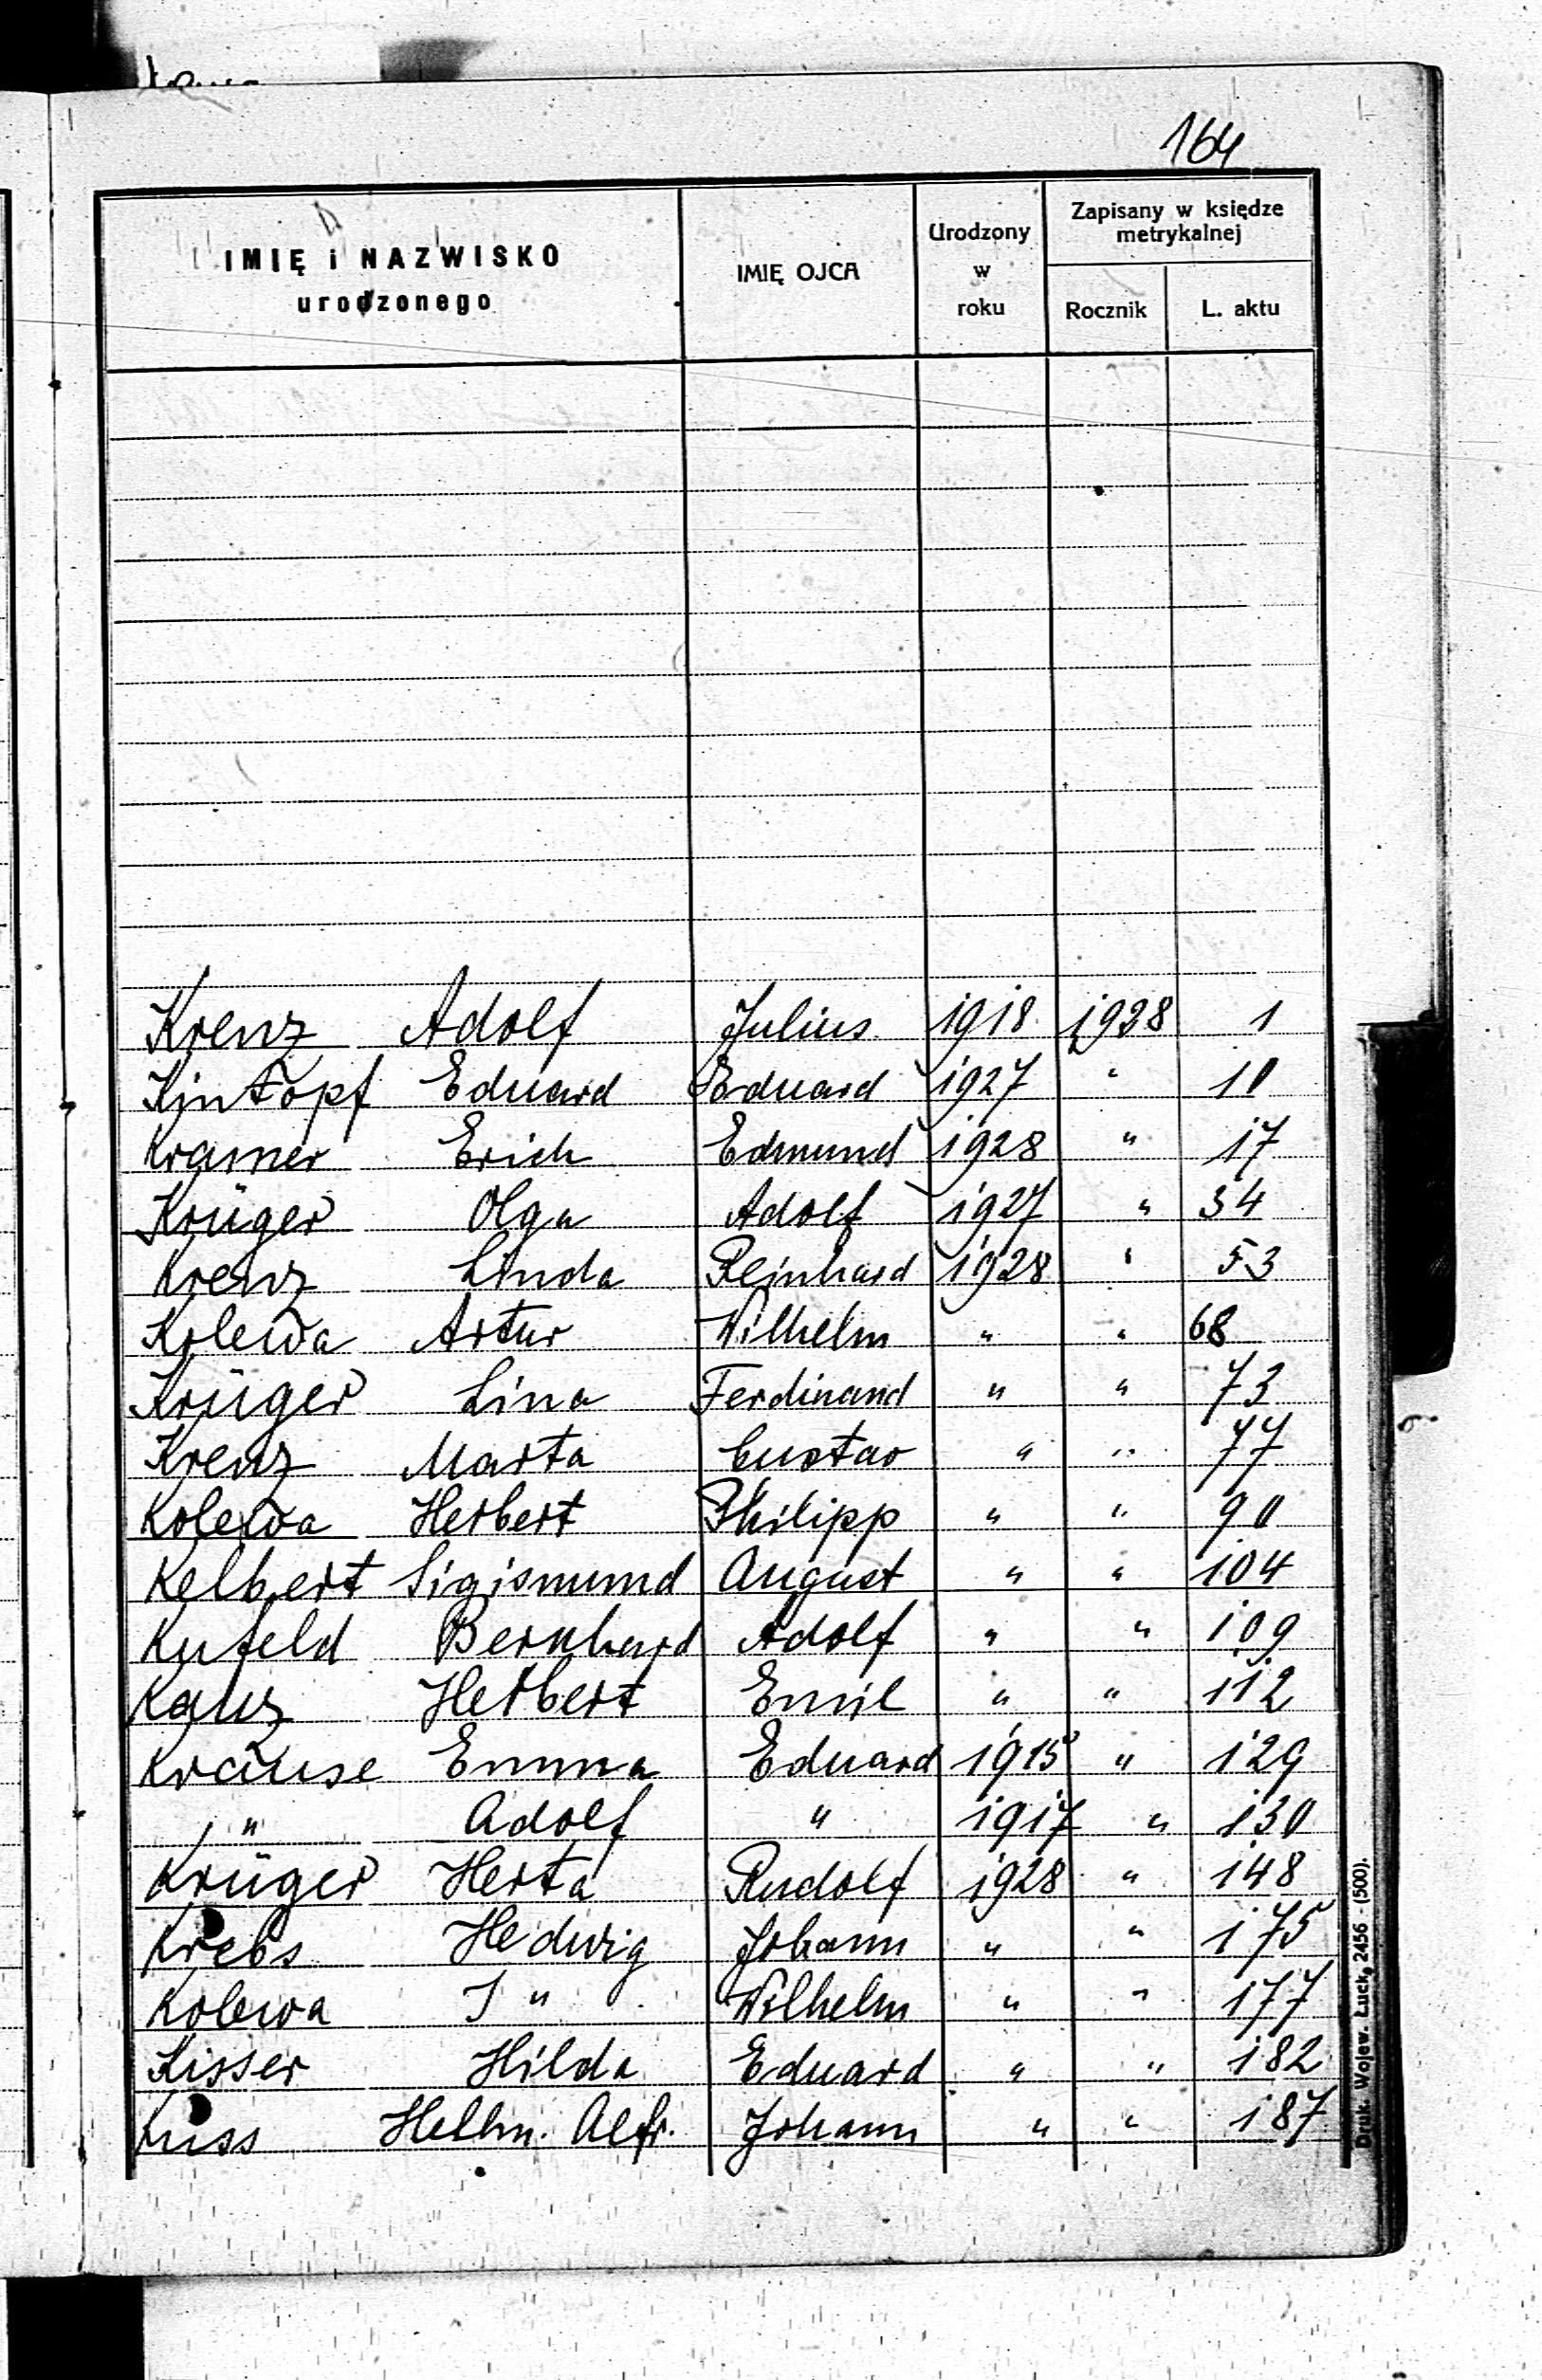 164
IMIĘ i NAZWISKO
urodzonego
IMIĘ OJCA
Urodzony
w
roku
Zapisany w księdze
metrykalnej
Rocznik
L. aktu
Krenz Adolf Julius 1918 1928 1
Kintopf Eduard Eduard 1927 " 10
Kramer Erich Edmund 1928 " 17
Krüger Olga Adolf 1927 " 34
Krenz Linda Reinhard 1928 " 53
Kolewa Artur Wilhelm " " 68
Krüger Lina Ferdinand " " 73
Krenz Marta Gustav " " 77
Kolewa Herbert Philipp " " 90
Kelbert Sigismund August " " 104
Kufeld Bernhard Adolf " " 109
Kanz Herbert Emil " " 112
Krause Emma Eduard 1915 " 129
" Adolf " 1917 " 130
Krüger Herta Rudolf 1928 " 148
Krebs Hedwig Johann " " 175
Kolewa " Wilhelm " " 177
Kisser Hilda Eduard " " 182
Kuss Helm. Alfr. Johann " " 187
Druk. Wojew. Łuck, 2456 - (500).